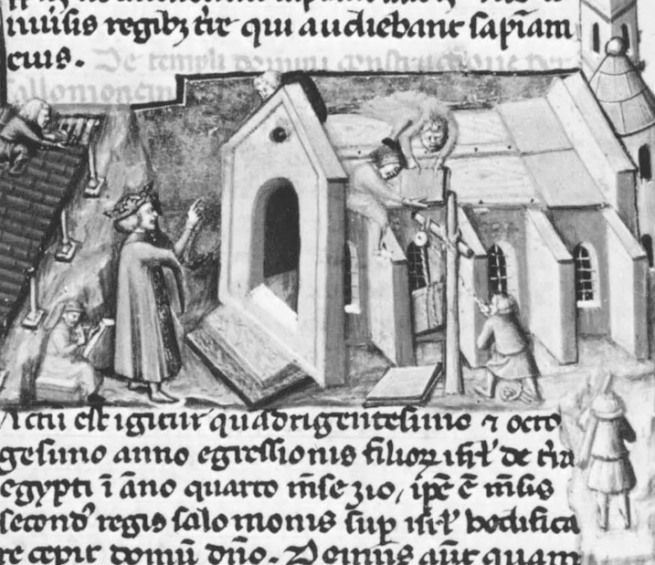 iuīsis regibꝫ t̄re qui audiebant sapīam
eius. De templi domini constructione per
allomonem
actū est igitur quadrigentesimo ⁊ octo
gesimo anno egressionis filioꝝ isrl̄ de t̄ra
egypti ī āno quarto m̄se zio, ip̄e ē m̄sis
second' regis salomonis sup̄ isrl̄ hedifica
re cepit domū dn̄o. Domus aūt quam